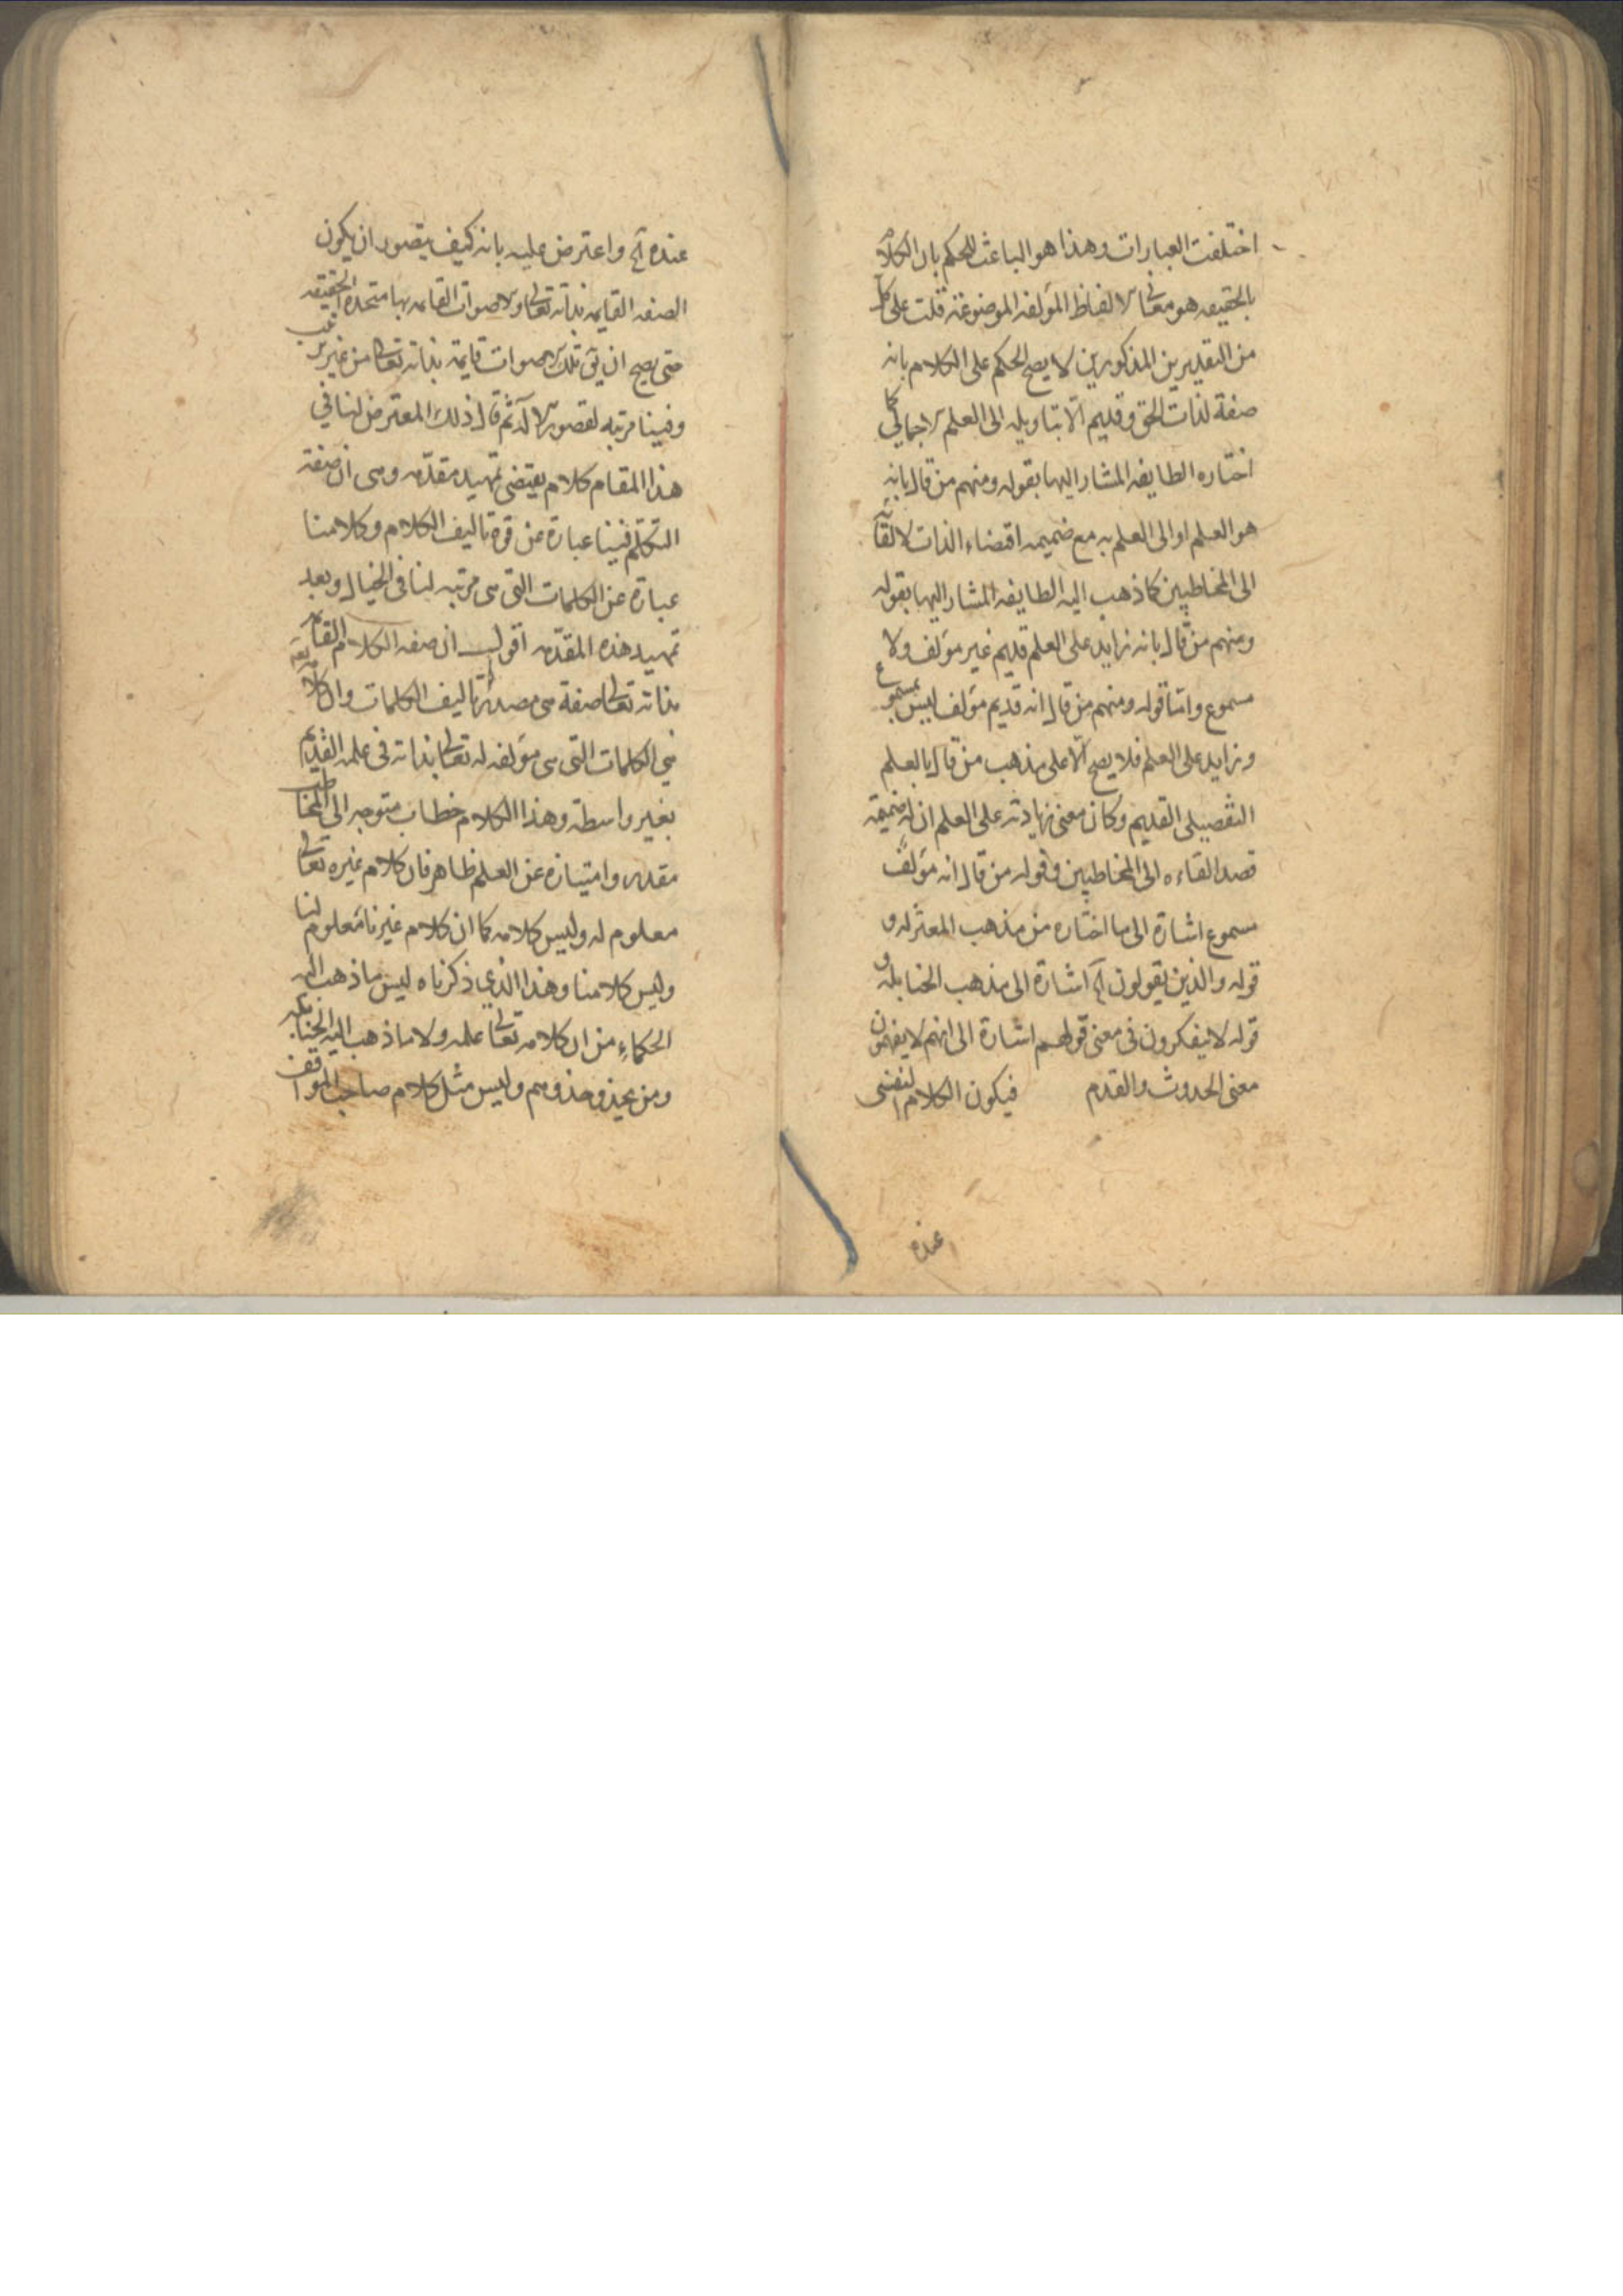 اختلفت العبارات وهذا هو الباعث للحكم بان الكلام
بالحقيقه هو معانى الالفاظ المؤلفه الموضوعة قلت على كل
من التقديرين المذكورين لا يصح الحكم على الكلام بانه
صفة لذات الحق وقديم الا بتاويله الى العلم الاجمالى كما
اختاره الطايفه المشار اليها بقوله ومنهم من قال بانه
هو العلم او الى العلم به مع ضميمه اقتضاء الذات لالقائه
الى المخاطبين كما ذهب اليه الطايفه المشار اليها بقوله
ومنهم من قال بانه زايد على العلم قديم غير مؤلف ولا
مسموع واما قوله ومنهم من قال انه قديم مؤلف ليس بمسموع
وزايد على العلم فلا يصح الا على مذهب من قال بالعلم
التفصيلى القديم وكان معنى زيادته على العلم ان له ضميمة
قصد القاءه الى المخاطبين وقوله من قال انه مؤلف
مسموع اشارة الى ما اختاره من مذهب المعتزله و
قوله والذين يقولون آه اشارة الى مذهب الحنابله و
قوله لا يتفكرون فى معنى قولهم اشارة الى انهم لا يفهمون
معنى الحدوث والقدم فيكون الكلام النفسى
عنده
عنده آه واعترض عليه بانه كيف يتصور ان يكون
الصفه القايمه بذاته تعالى والاصوات القايمه بها متحدة الحقيقه
حتى يصح ان يق تلك الاصوات قايمة بذاته تعالى من غير ترتيب
وفينا مرتبه لقصور الآلة ثم قال ذلك المعترض لنا فى
هذا المقام كلام يقتضى تمهيد مقدمه وهى ان صفة
التكلم فينا عبارة عن قوة تاليف الكلام وكلامنا
عبارة عن الكلمات التى هى مرتبه لنا فى الخيال وبعد
تمهيد هذه المقدمه اقول ان صفه الكلام القايمه
بذاته تعالى صفة هى مصدر تاليف الكلمات وان كلامه تع
هى الكلمات التى هى مؤلفه له تعالى بذاته فى علمه القديم
بغير واسطة وهذا الكلام خطاب متوجه الى المخاطب
مقدر وامتيازه عن العلم ظاهر فان كلام غيره تعالى
معلوم له وليس كلامه كما ان كلام غيرنا معلوم لنا
وليس كلامنا وهذا الذى ذكرناه ليس ما ذهب اليه
الحكماء من ان كلامه تعالى علمه ولا ما ذهب اليه الحنابله
ومن يحذو حذوهم وليس مثل كلام صاحب المواقف